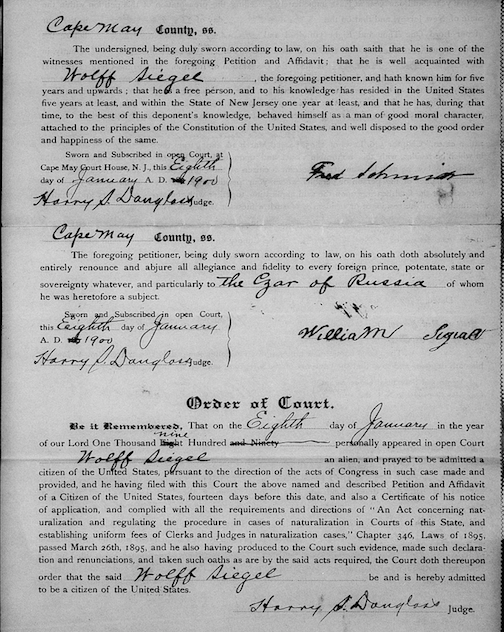 Cape May County, ss.
The undersigned, being duly sworn according to law, on his oath saith that he is one of the
witnesses mentioned in the foregoing Petition and Affidavit; that he is well acquainted with
Wolff Siegel, the foregoing petitioner, and hath known him for five
years and upwards; that he is a free person, and to his knowledge has resided in the United States
five years at least, and within the State of New Jersey one year at least, and that he has, during that
time, to the best of this deponent's knowledge, behaved himself as a man of good moral character,
attached to the principles of the Constitution of the United States, and well disposed to the good order
and happiness of the same.
Sworn and Subscribed in open Court, at
Cape May Court House, N. J., this Eighth
day of January A. D. 1900
Harry S. Douglass Judge.
Fred Schmidt
Cape May County, ss.
The foregoing petitioner, being duly sworn according to law, on his oath doth absolutely and
entirely renounce and abjure all allegiance and fidelity to every foreign prince, potentate, state or
sovereignty whatever, and particularly to the Czar of Russia of whom
he was heretofore a subject.
Sworn and Subscribed in open Court,
this Eighth day of January
A. D. 1900
Harry S. Douglass Judge.
William
Order of Court.
Be it Remembered, That on the Eighth day of January in the year
nine
of our Lord One Thousand Eight Hundred and Ninety personally appeared in open Court
Wolff Siegel an alien, and prayed to be admitted a
citizen of the United States, pursuant to the direction of the acts of Congress in such case made and
provided, and he having filed with this Court the above named and described Petition and Affidavit
of a Citizen of the United States, fourteen days before this date, and also a Certificate of his notice
of application, and complied with all the requirements and directions of "An Act concerning nat-
uralization and regulating the procedure in cases of naturalization in Courts of this State, and
establishing uniform fees of Clerks and Judges in naturalization cases," Chapter 346, Laws of 1895,
passed March 26th, 1895, and he also having produced to the Court such evidence, made such declara-
tion and renunciations, and taken such oaths as are by the said acts required, the Court doth thereupon
order that the said Wolff Siegel be and is hereby admitted
to be a citizen of the United States.
Harry S. Douglass Judge.